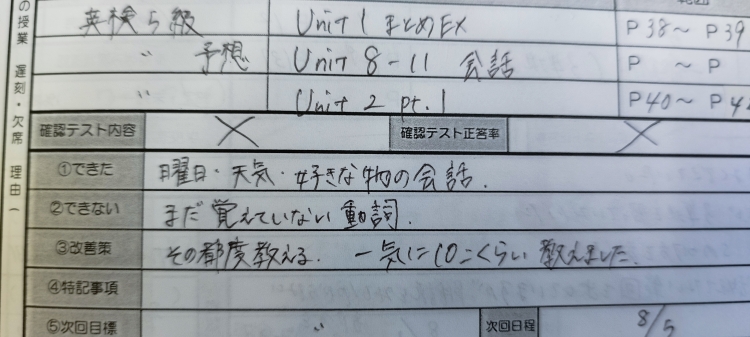 の授業 遅刻・欠席 理由(
英検5級 Unit 1 まとめEX P 38 ~ P 39
〃 予想 Unit 8-11 会話 P ~ P
〃 Unit 2 pt.1 P40 ~ P 4
確認テスト内容 × 確認テスト正答率 ×
①できた 曜日・天気・好きな物の会話.
②できない まだ覚えていない動詞.
③改善策 その都度教える. 一気に10こくらい教えました.
④特記事項
⑤次回目標 〃 次回日程 8/5